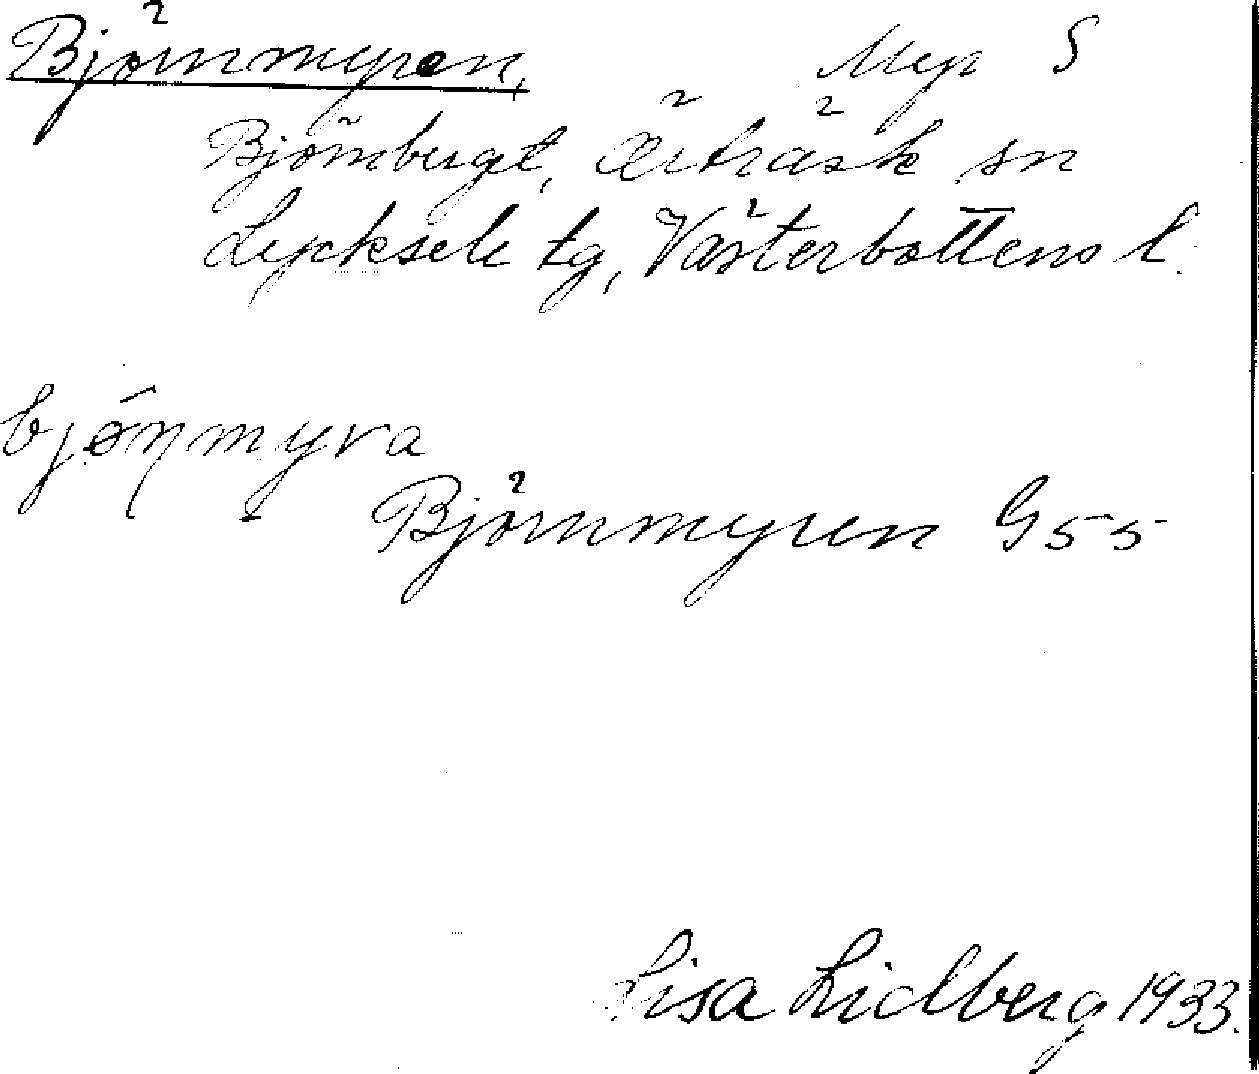 Björnmyren, Myr S
Björnberget, Örträsk sn
Lycksele tg, Västerbottens l.
bjǿnmyra
Björnmyren G55
Lisa Lidberg 1933.